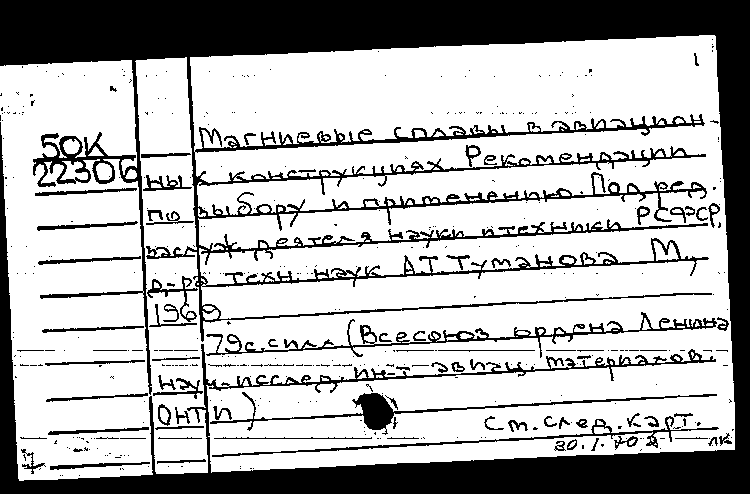 1
50К
22306
Магниевые сплавы в авиацион-
ных конструкциях. Рекомендации
по выбору и применению. Под ред.
заслуж. деятеля науки и техники РСФСР,
д-ра техн. наук А.Т. Туманова М.,
1969.
79 с. с илл (Всесоюз ордена Ленина
науч.-исслед. ин-т авиац. материалов.
ОНТИ)
См. след. карт.
лк